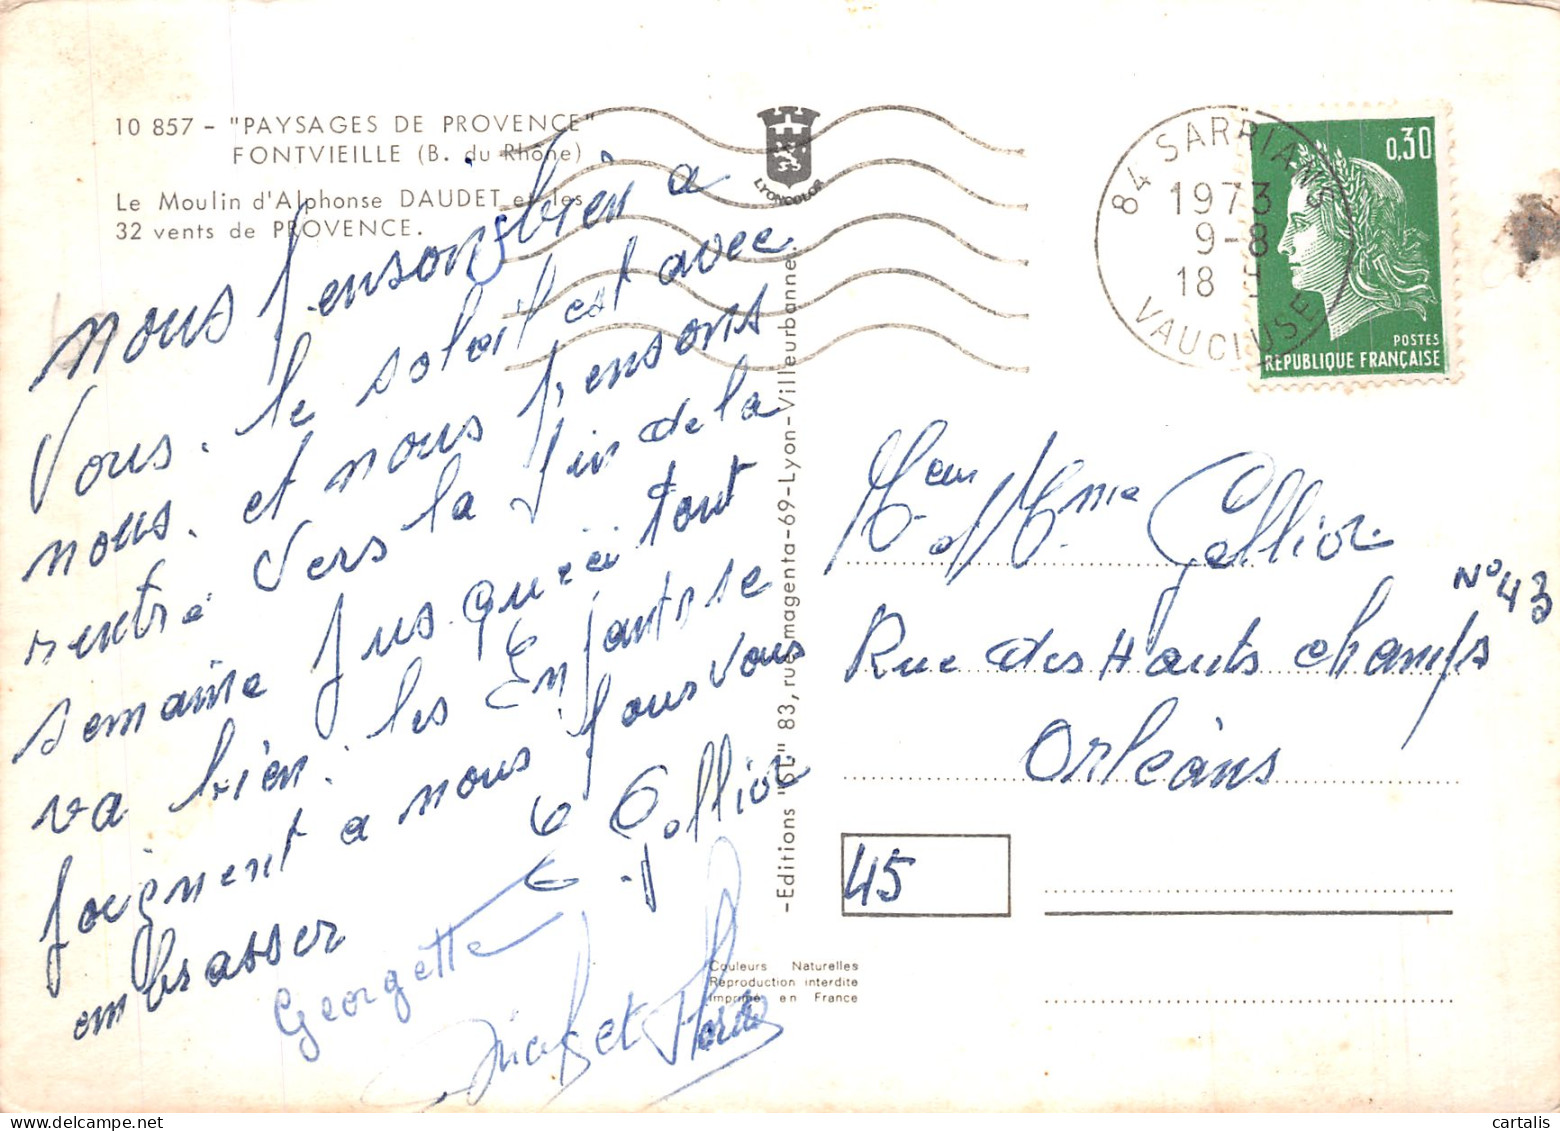 10 857 - "PAYSAGES DE PROVENCE"
FONTVIEILLE (B. du Rhône)
Le Moulin d'Alphonse DAUDET et les
32 vents de PROVENCE.
LYONCOLOR
84 SARRIANS
1973
9-8
18
VAUCLUSE
0,30
POSTES
REPUBLIQUE FRANÇAISE
nous pensons bien a
Vous. le soleil est avec
nous. et nous pensons
rentre vers la fin de la
semaine jusqu'ici tout
va bien. les Enfants se
joignent a nous pour vous
embrasser
Georgette
et
-Editions "SL" 83, rue magenta-69-Lyon-Villeurbanne-
Meur et Mme Gellior
N° 43
Rue des Hauts champs
Orléans
45
Couleurs Naturelles
Reproduction interdite
Imprimé en France
cartalis